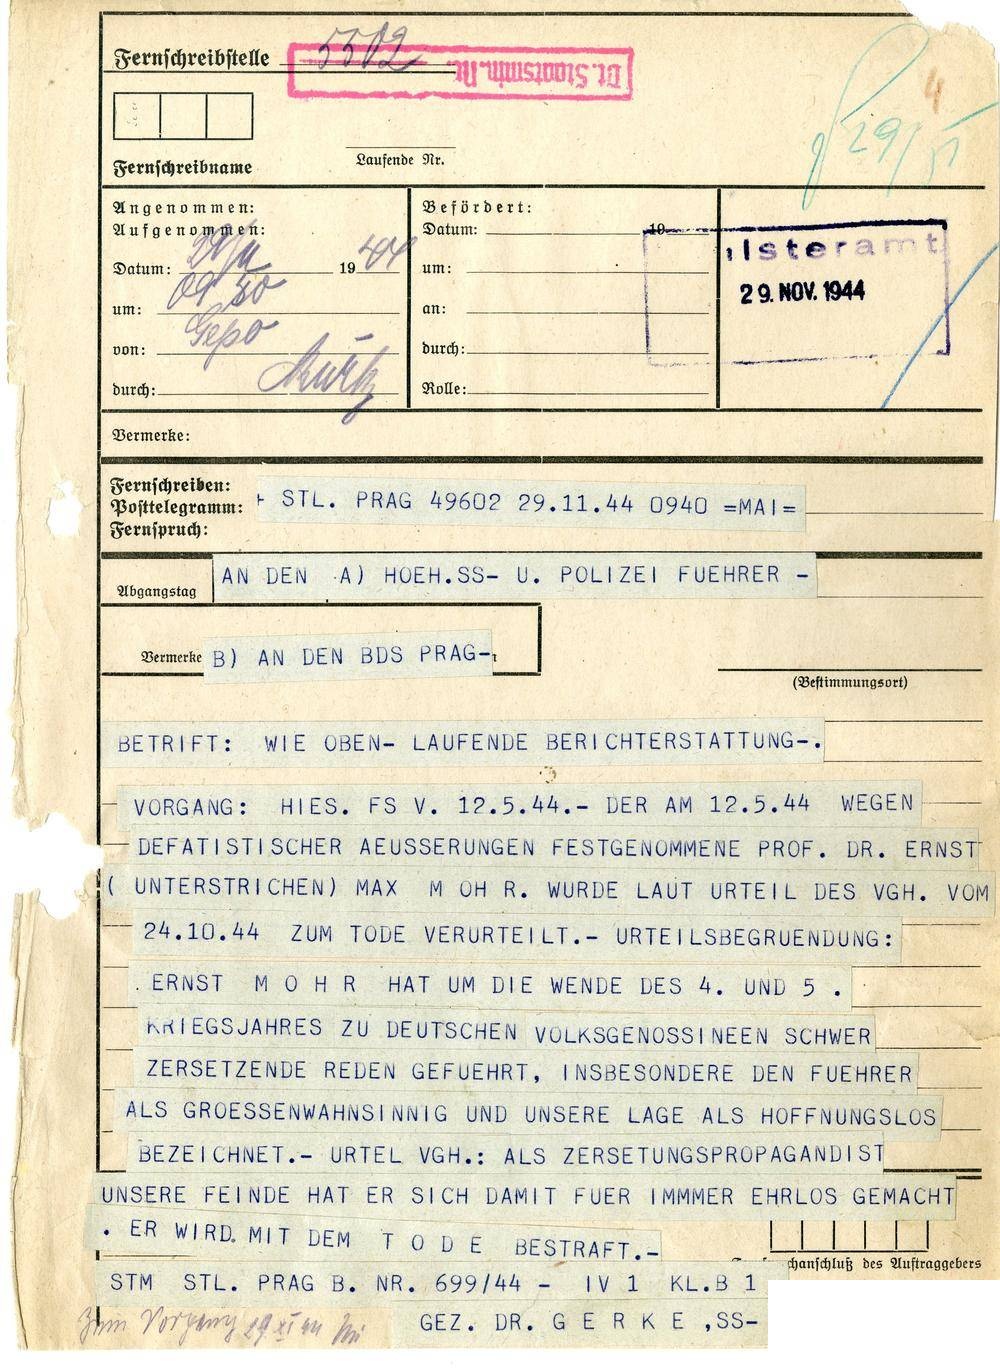 Fernschreibstelle 5502
Dt. Staatsmin.
4
29/11
Fernschreibname
Laufende Nr.
Angenommen:
Aufgenommen:
Datum: 29/11 1944
um: 09 50
von: Gepo
durch:
Befördert:
Datum: 19
um:
an:
durch:
Rolle:
isteramt
29. NOV. 1944
Vermerke:
Fernschreiben:
Posttelegramm:
Fernspruch:
+ STL. PRAG 49602 29.11.44 0940 =MAI=
Abgangstag
AN DEN A) HOEH.SS- U. POLIZEI FUEHRER -
Vermerke B) AN DEN BDS PRAG-
(Bestimmungsort)
BETRIFT: WIE OBEN- LAUFENDE BERICHTERSTATTUNG-.
VORGANG: HIES. FS V. 12.5.44.- DER AM 12.5.44 WEGEN
DEFATISTISCHER AEUSSERUNGEN FESTGENOMMENE PROF. DR. ERNST
( UNTERSTRICHEN) MAX M OH R. WURDE LAUT URTEIL DES VGH. VOM
24.10.44 ZUM TODE VERURTEILT.- URTEILSBEGRUENDUNG:
. ERNST M O H R HAT UM DIE WENDE DES 4. UND 5 .
KRIEGSJAHRES ZU DEUTSCHEN VOLKSGENOSSINEEN SCHWER
ZERSETZENDE REDEN GEFUEHRT, INSBESONDERE DEN FUEHRER
ALS GROESSENWAHNSINNIG UND UNSERE LAGE ALS HOFFNUNGSLOS
BEZEICHNET.- URTEL VGH.: ALS ZERSETUNGSPROPAGANDIST
UNSERE FEINDE HAT ER SICH DAMIT FUER IMMMER EHRLOS GEMACHT
. ER WIRD MIT DEM T O D E BESTRAFT.-
chanschluß des Auftraggebers
STM STL. PRAG B. NR. 699/44 - IV 1 KL.B 1
Zum Vorgang 29 XI 44
GEZ. DR. G E R K E ,SS-